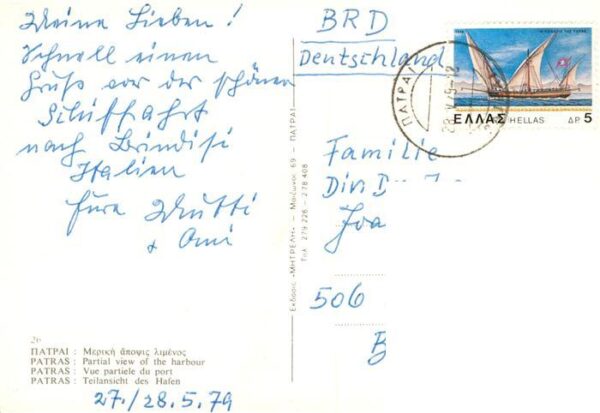 Meine Lieben!
Schnell einen
Gruß vor der schönen
Schiffahrt
nach Brindisi
Italien
Eure Mutti
+ Omi
26
ΠΑΤΡΑΙ : Μερική ἄποψις λιμένος
PATRAS : Partial view of the harbour
PATRAS : Vue partiele du port
PATRAS : Teilansicht des Hafen
27./28.5.79
Εκδοσις «ΜΗΤΡΕΛΗ» — Μαιζώνος 69 — ΠΑΤΡΑΙ
Τηλ. 279 226 - 278 408
BRD
Deutschland
ΠΑΤΡΑΙ
ΕΛΛΑΣ HELLAS ΔΡ 5
Familie
506
B